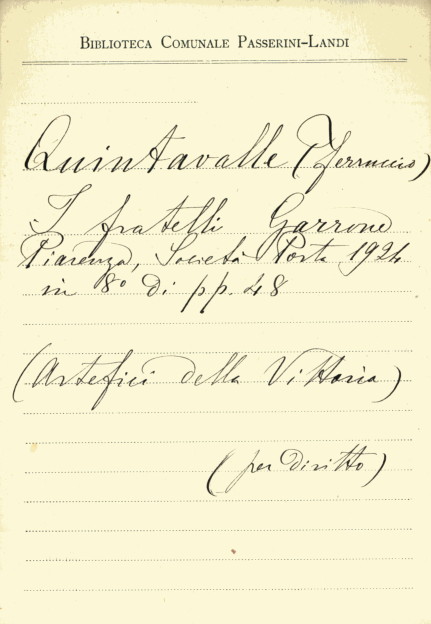 BIBLIOTECA COMUNALE PASSERINI-LANDI
Quintavalle (Ferruccio)
I fratelli Garrone
Piacenza, Società Porta 1924
in 8º di pp. 48
(Artefici della Vittoria)
(per diritto)